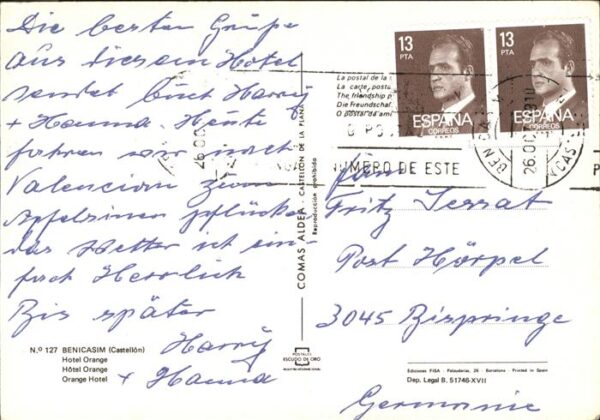 Die besten Grüße
aus diesem Hotel
sendet Euch Harry
+ Hanna. Heute
fahren wir nach
Valencian zum
Apfelsinen pflücken
das Wetter ist ein-
fach Herrlich
Bis später
Harry
+ Hanna
N.º 127 BENICASIM (Castellón)
Hotel Orange
Hôtel Orange
Orange Hotel
COMAS ALDEA - CASTELLON DE LA PLANA
Reproducción prohibida
POSTALES
ESCUDO DE ORO
La postal de la
La carte postu
The friendship p
Die Freundschaf
O postal da am
13
PTA
ESPAÑA
CORREOS
13
PTA
ESPAÑA
CORREOS
26.OC
NUMERO DE ESTE
BENICA
26.OC
CASTE
P
Fam
Fritz Serrat
Post Hörpel
3045 Bispringe
Germanie
Ediciones FISA - Palaudarias, 26 - Barcelona - Printed in Spain
Dep. Legal B. 51746-XVII